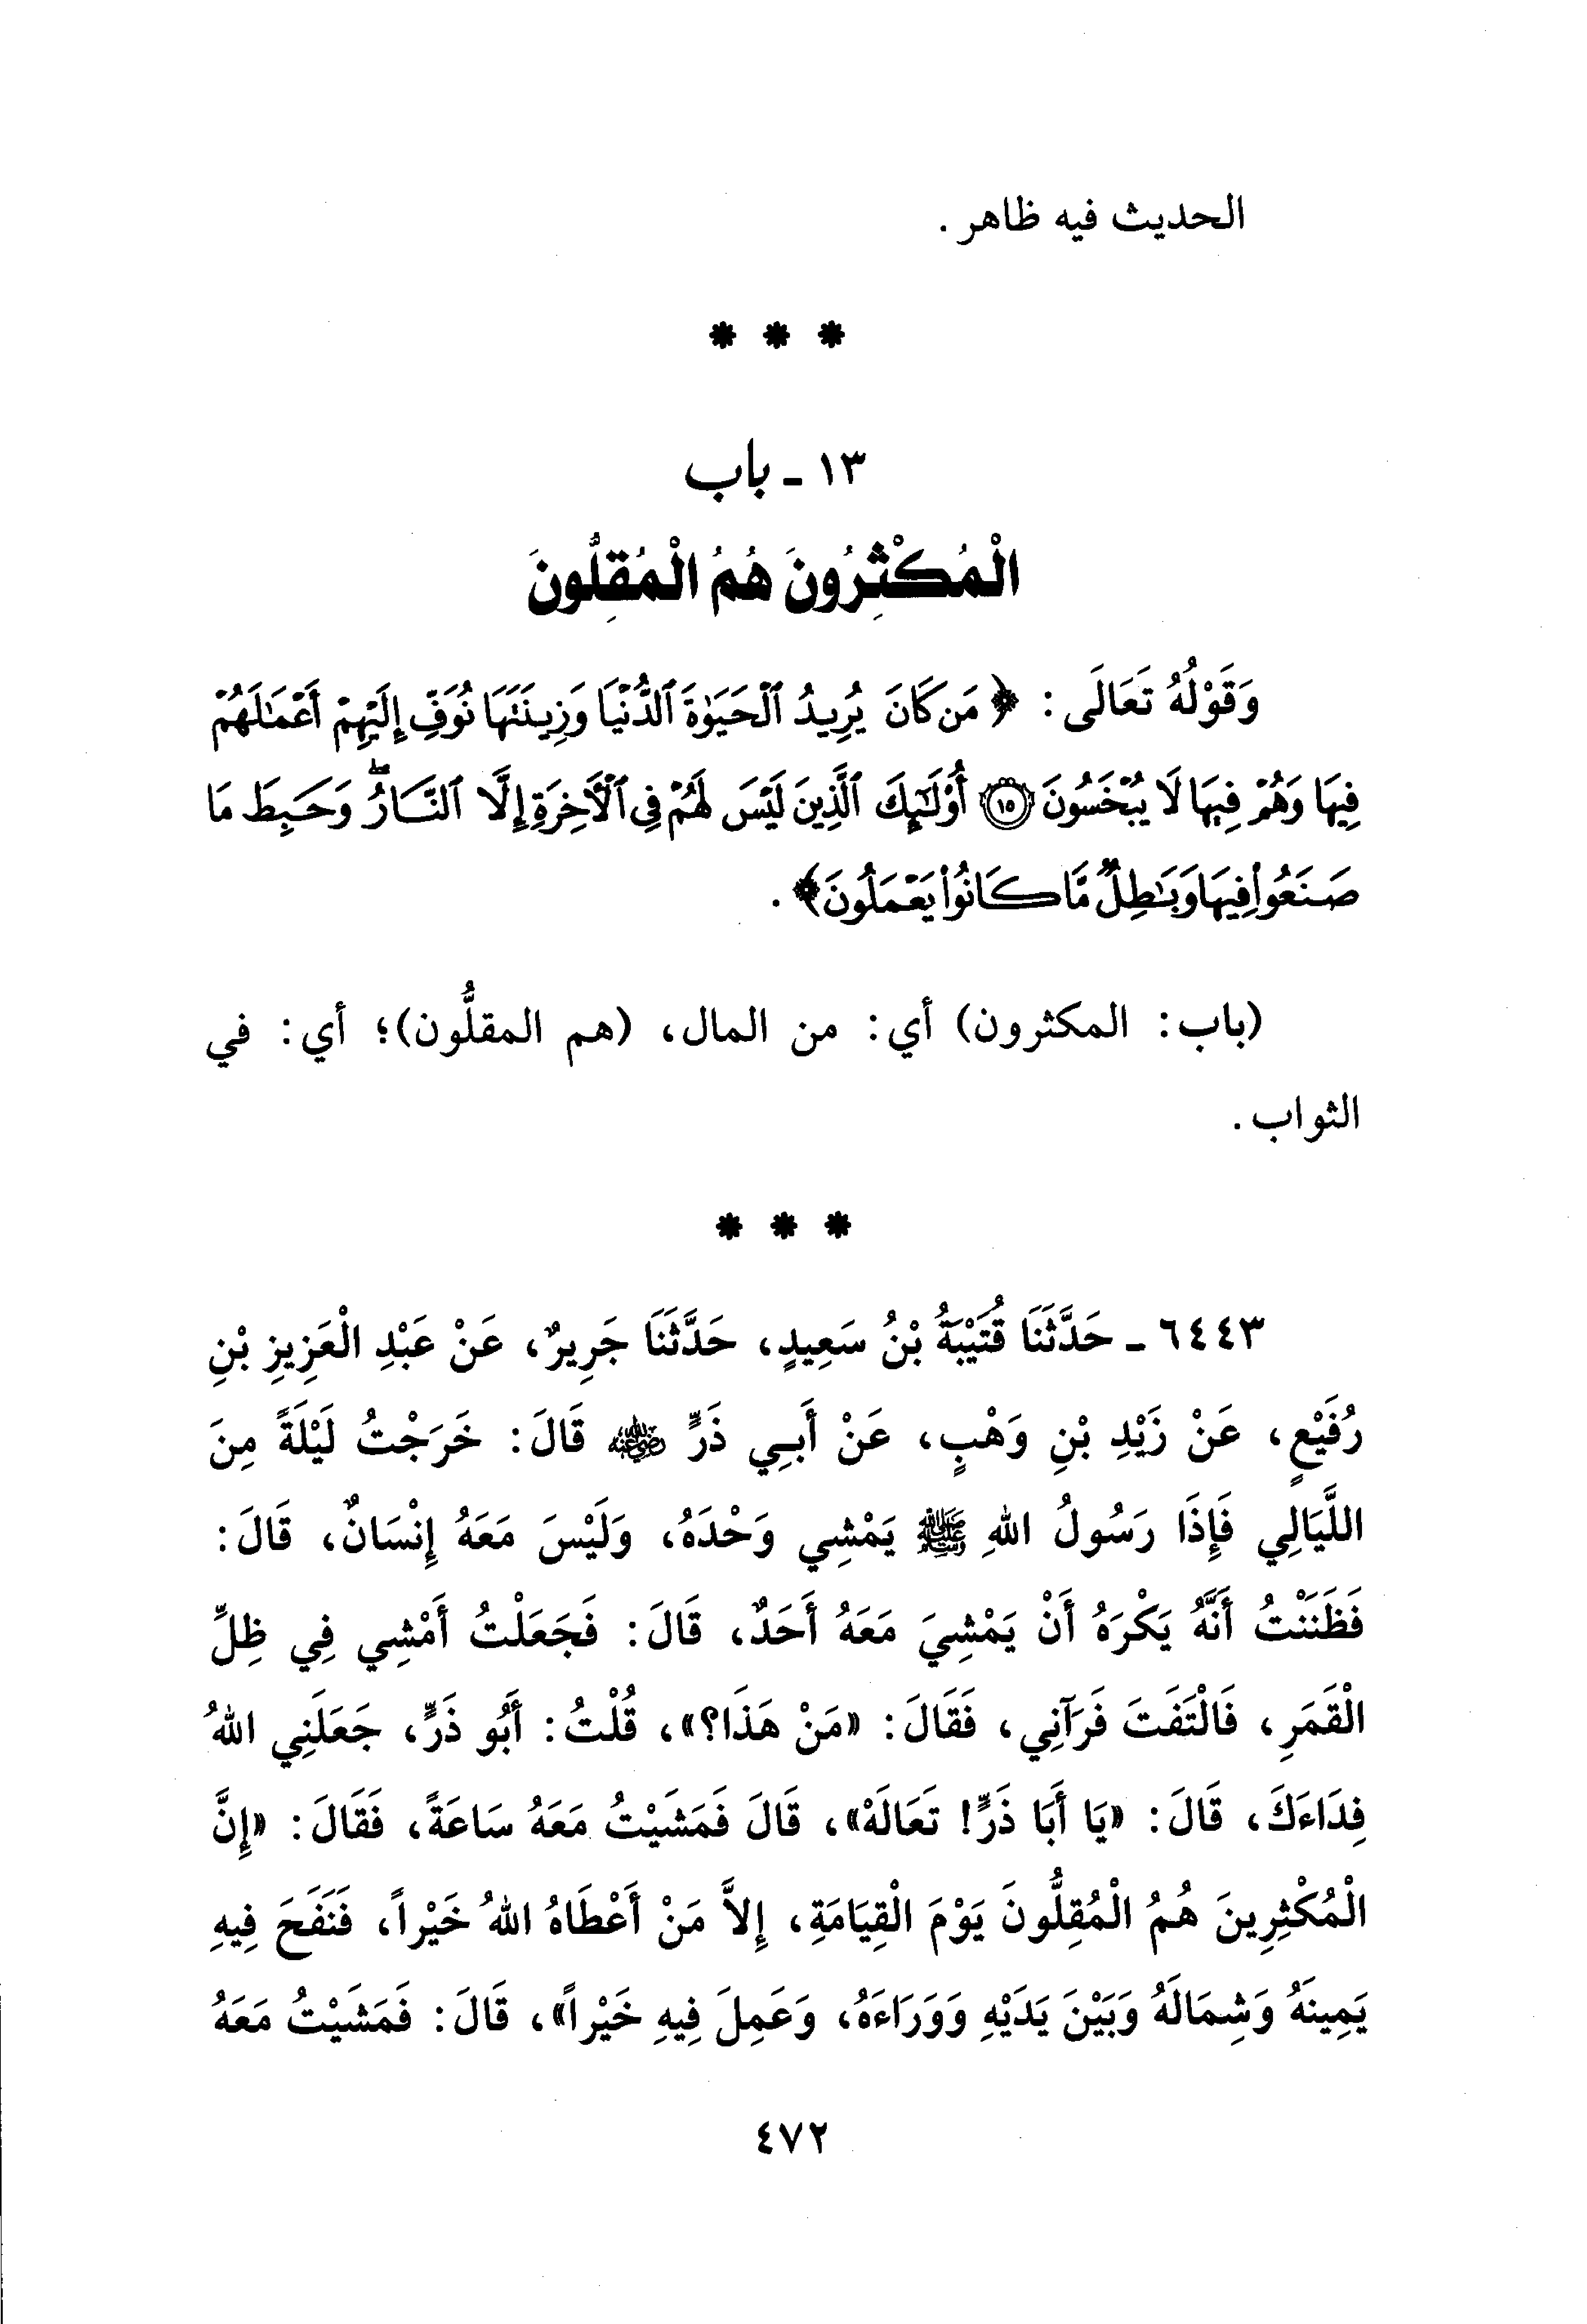 الحديث فيه ظاهر.
* * *
١٣ - باب
الْمُكْثِرُونَ هُمُ الْمُقِلُّونَ
وَقَوْلُهُ تَعَالَى: ﴿مَن كَانَ يُرِيدُ ٱلْحَيَوٰةَ ٱلدُّنْيَا وَزِينَتَهَا نُوَفِّ إِلَيْهِمْ أَعْمَٰلَهُمْ
فِيهَا وَهُمْ فِيهَا لَا يُبْخَسُونَ ۝١٥ أُوْلَٰٓئِكَ ٱلَّذِينَ لَيْسَ لَهُمْ فِى ٱلْأَخِرَةِ إِلَّا ٱلنَّارُ ۖ وَحَبِطَ مَا
صَنَعُوا۟ فِيهَا وَبَٰطِلٌ مَّا كَانُوا۟ يَعْمَلُونَ﴾.
(باب: المكثرون) أي: من المال، (هم المقلُّون)؛ أي: في
الثواب.
* * *
٦٤٤٣ - حَدَّثَنَا قُتَيْبَةُ بْنُ سَعِيدٍ، حَدَّثَنَا جَرِيرٌ، عَنْ عَبْدِ الْعَزِيزِ بْنِ
رُفَيْعٍ، عَنْ زَيْدِ بْنِ وَهْبٍ، عَنْ أَبِي ذَرٍّ رضي الله عنه قَالَ: خَرَجْتُ لَيْلَةً مِنَ
اللَّيَالِي فَإِذَا رَسُولُ اللهِ ﷺ يَمْشِي وَحْدَهُ، وَلَيْسَ مَعَهُ إِنْسَانٌ، قَالَ:
فَظَنَنْتُ أَنَّهُ يَكْرَهُ أَنْ يَمْشِيَ مَعَهُ أَحَدٌ، قَالَ: فَجَعَلْتُ أَمْشِي فِي ظِلِّ
الْقَمَرِ، فَالْتَفَتَ فَرَآنِي، فَقَالَ: «مَنْ هَذَا؟»، قُلْتُ: أَبُو ذَرٍّ، جَعَلَنِي اللهُ
فِدَاءَكَ، قَالَ: «يَا أَبَا ذَرٍّ! تَعَالَهْ»، قَالَ فَمَشَيْتُ مَعَهُ سَاعَةً، فَقَالَ: «إِنَّ
الْمُكْثِرِينَ هُمُ الْمُقِلُّونَ يَوْمَ الْقِيَامَةِ، إِلاَّ مَنْ أَعْطَاهُ اللهُ خَيْراً، فَنَفَحَ فِيهِ
يَمِينَهُ وَشِمَالَهُ وَبَيْنَ يَدَيْهِ وَوَرَاءَهُ، وَعَمِلَ فِيهِ خَيْراً»، قَالَ: فَمَشَيْتُ مَعَهُ
٤٧٢